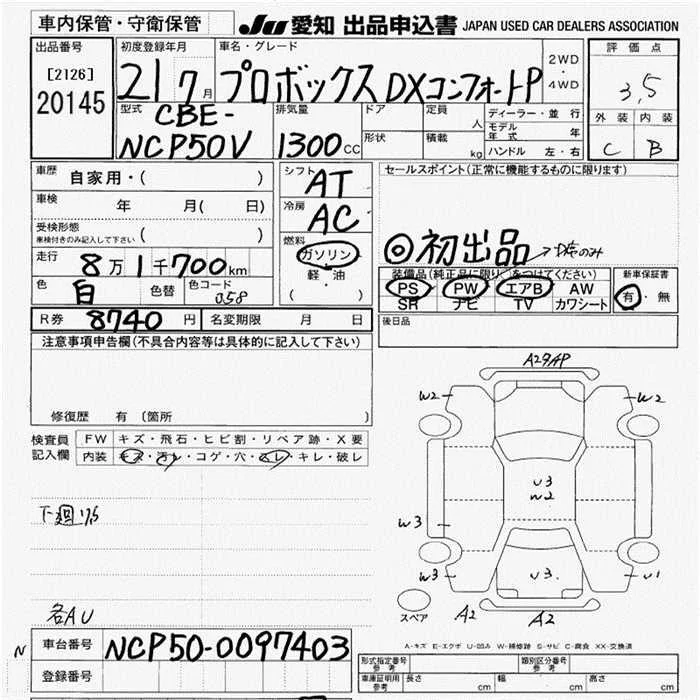 車内保管・守衛保管
JU 愛知 出品申込書 JAPAN USED CAR DEALERS ASSOCIATION
出品番号
[2126]
20145
初度登録年月
21 7月
車名・グレード
プロボックス DXコンフォートP
2WD
・
4WD
評価点
3,5
外装 内装
C B
型式
CBE-
NCP50V
排気量
1300cc
ドア
形状
定員
人
積載
kg
ディーラー・並行
モデル年式 年
ハンドル 左・右
車歴
自家用・( )
車検
年 月( 日)
受検形態
車検付きのみ記入して下さい ( )
走行
8万1千700km
色
白
色替
色コード
058
シフト
AT
冷房
AC
燃料
ガソリン
・
軽・油
( )
セールスポイント(正常に機能するものに限ります)
◎初出品
装備品(純正品に限り○をつけてください)
PS PW エアB AW
SR ナビ TV カワシート
新車保証書
有・無
後日品
R券
8740円
名変期限 月 日
注意事項申告欄(不具合内容等は具体的に記入して下さい)
修復歴 有 (箇所
検査員記入欄
FW キズ・飛石・ヒビ割・リペア跡・X要
内装 キズ・汚レ・コゲ・穴・スレ・キレ・破レ
下廻
各AU
A29AP
W2
W2
U3
W2
W3
W3
U3
U1
A2
A2
スペア
A-キズ E-エクボ U-凹み W-補修跡 S-サビ C-腐食 XX-交換済
N
車台番号
NCP50-0097403
登録番号
型式指定番号
参考
類別区分番号
参考
車庫証明用
参考
長さ cm
幅 cm
高さ cm